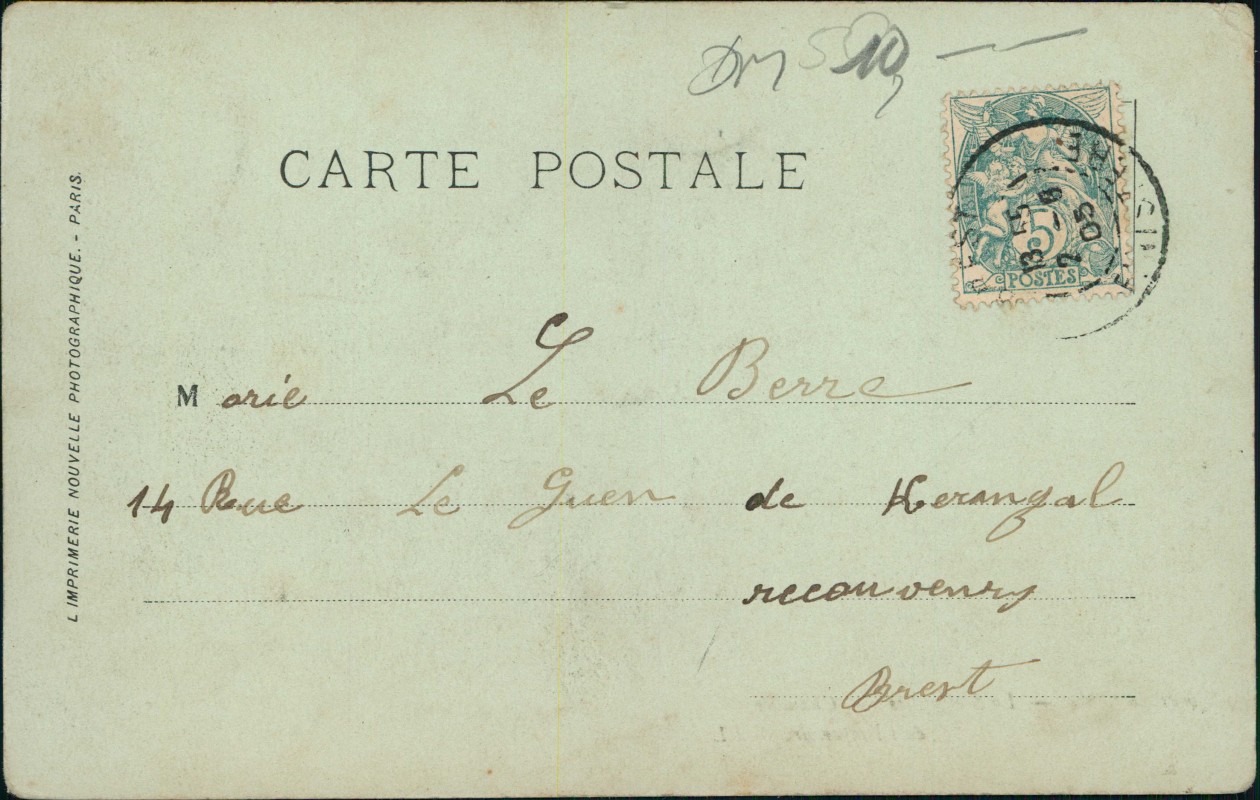 CARTE POSTALE
5
POSTES
BREST
13 55
2 - 9
03
FINISTERE
L IMPRIMERIE NOUVELLE PHOTOGRAPHIQUE. - PARIS.
Marie Le Berre
14 Rue Le Guen de Kerangal
recouvenry
Brest